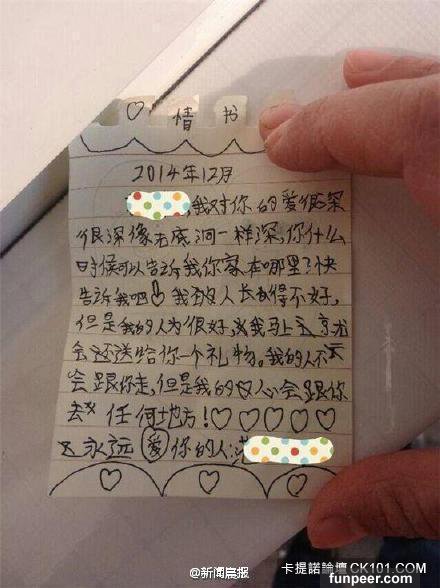 ♡ 情 书
2014年12月
我对你的爱很深
很深像无底洞一样深,你什么
时候可以告诉我你家在哪里?快
告诉我吧!我的人长得不好,
但是我的人为很好,我马上
会还送给你一个礼物。我的人不
会跟你走,但是我的心会跟你
去任何地方!♡♡♡♡♡
永远爱你的人:
@新闻晨报
卡提諾論壇 CK101.COM
funpeer.com